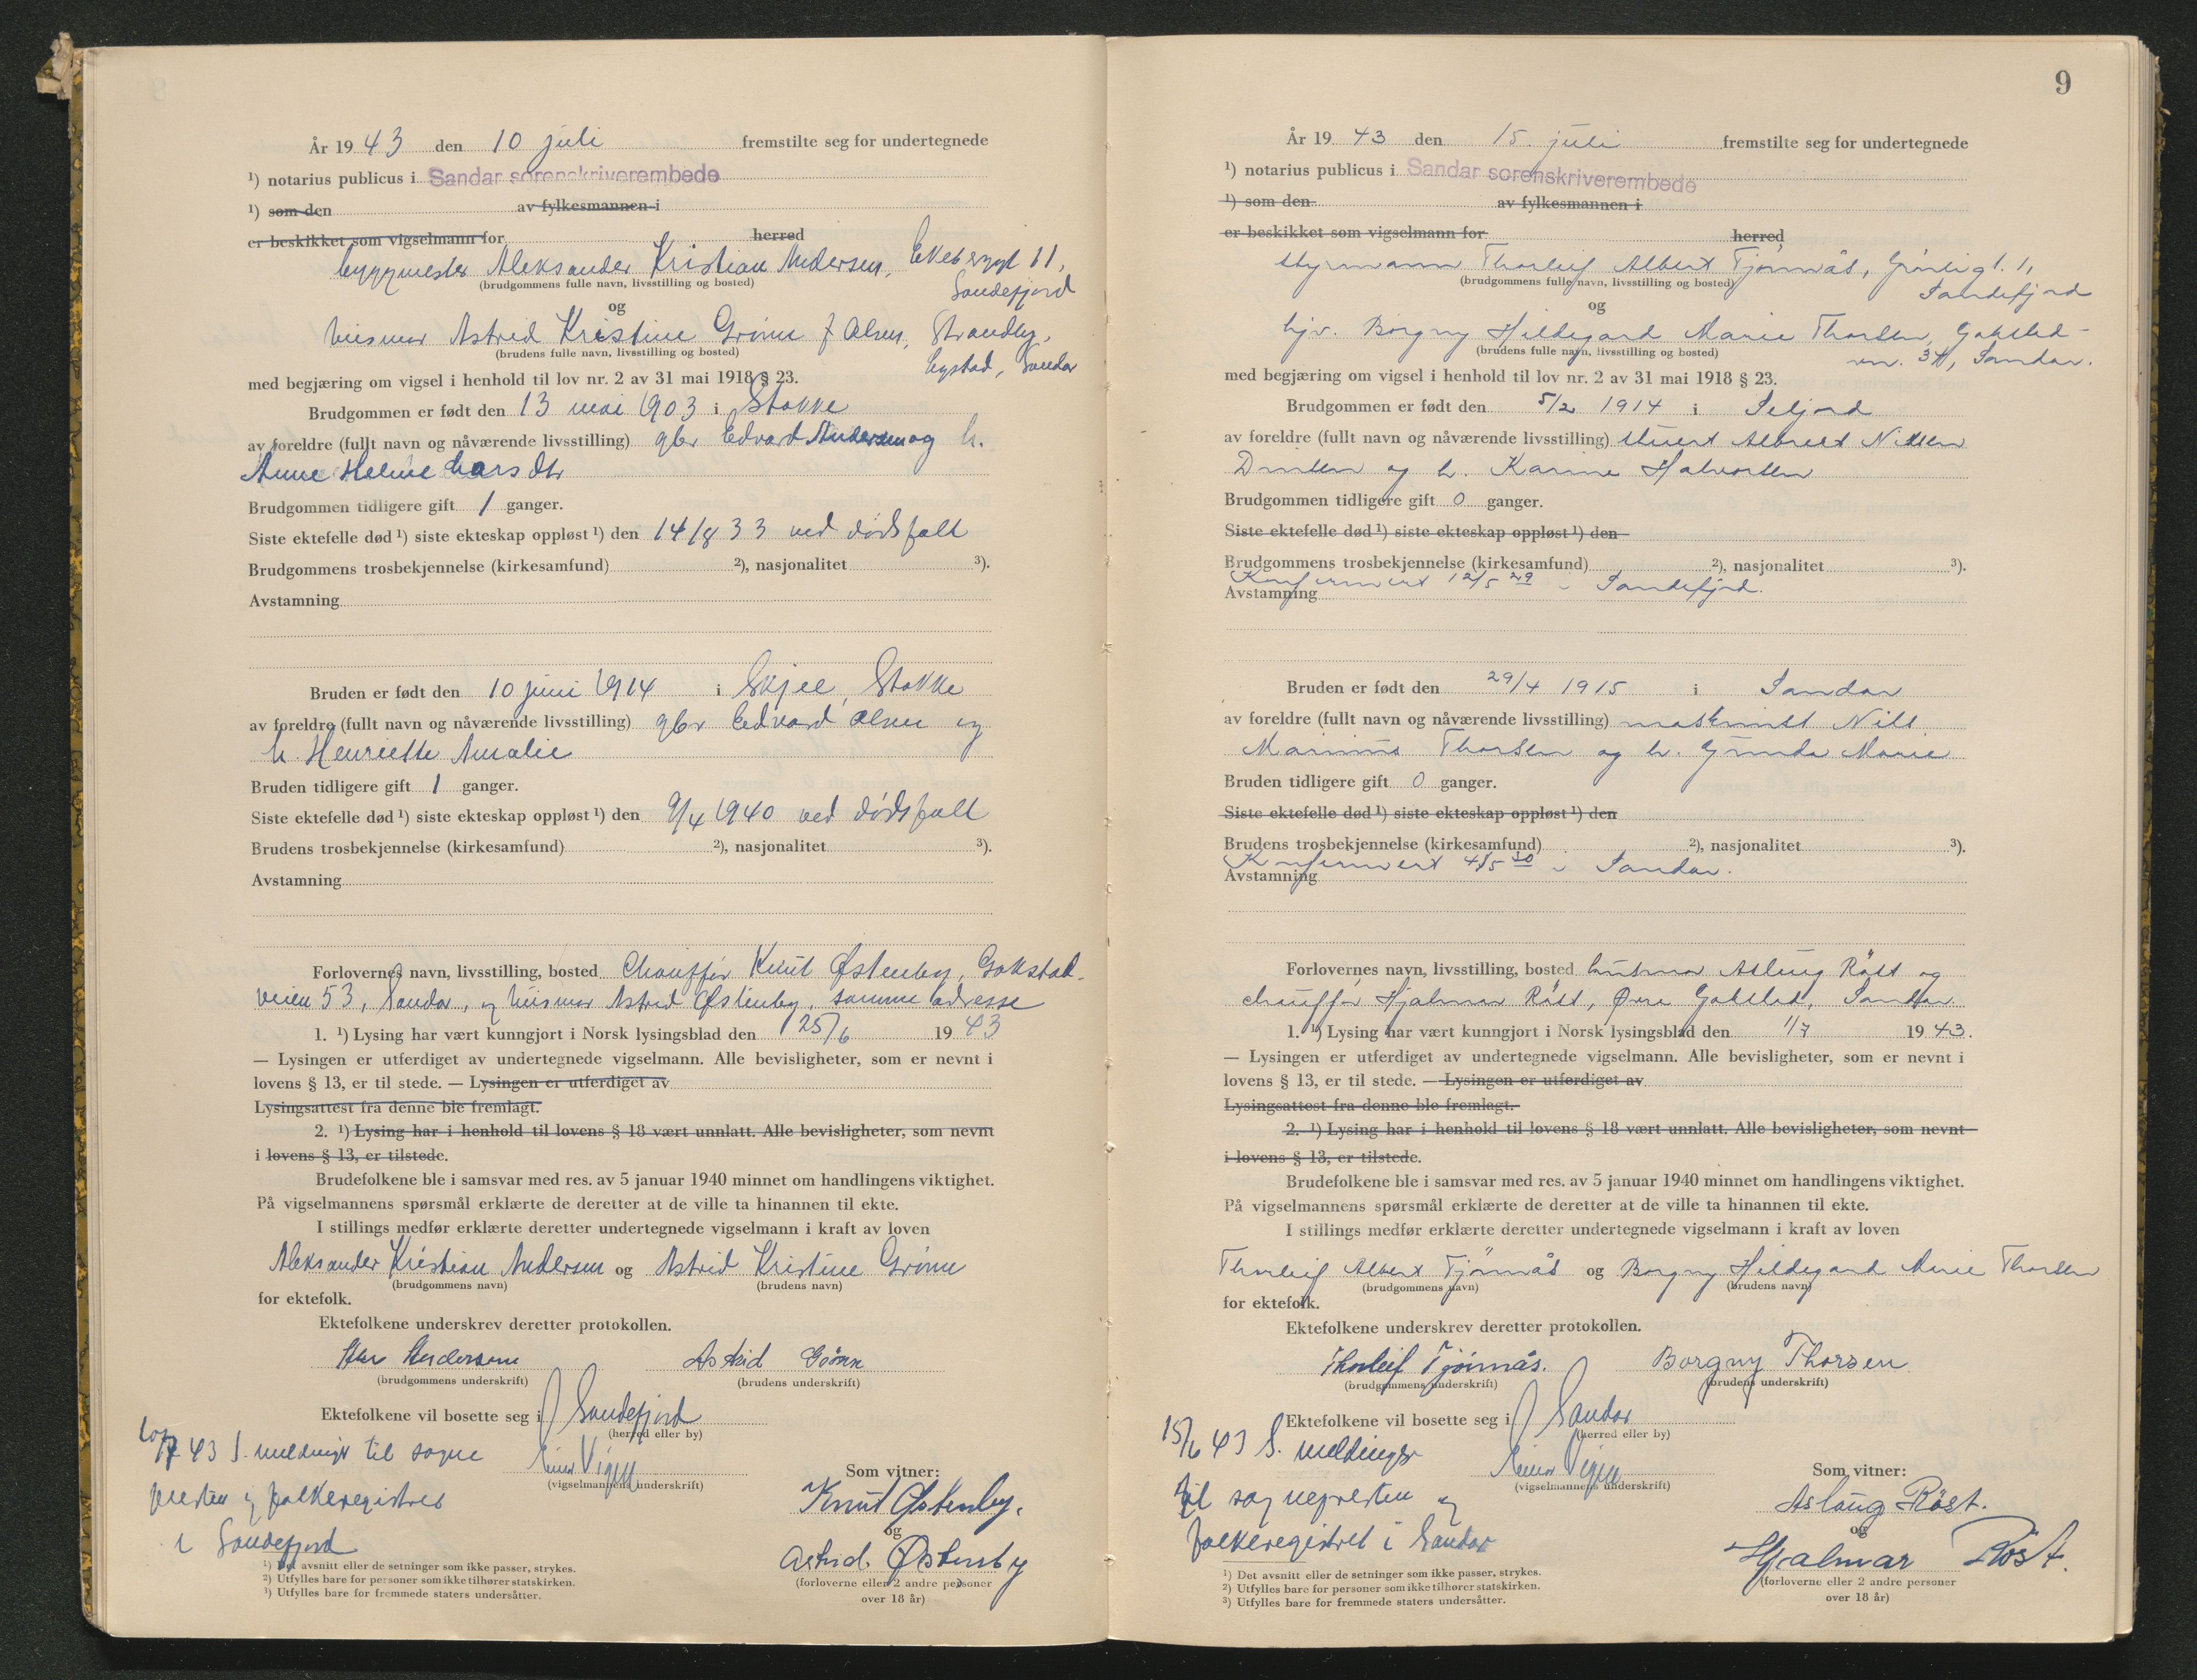 År 1943 den 10 juli fremstilte seg for undertegnede
¹) notarius publicus i Sandar sorenskriverembede
¹) som den av fylkesmannen i
er beskikket som vigselmann for herred
byggmester Aleksander Kristian Andersen, Ekeberggt 11,
(brudgommens fulle navn, livsstilling og bosted)
Sandefjord
og
husmor Astrid Kristine Grønn f Olsen, Strandby,
(brudens fulle navn, livsstilling og bosted)
bystad, Sandar
med begjæring om vigsel i henhold til lov nr. 2 av 31 mai 1918 § 23.
Brudgommen er født den 13 mai 1903 i Stokke
av foreldre (fullt navn og nåværende livsstilling) gbr Edvard Andersen og h.
Anne Heline Larsdtr
Brudgommen tidligere gift 1 ganger.
Siste ektefelle død ¹) siste ekteskap oppløst ¹) den 14/8 33 ved dödsfall
Brudgommens trosbekjennelse (kirkesamfund) ²), nasjonalitet ³).
Avstamning
Bruden er født den 10 juni 1914 i Skjee, Stokke
av foreldre (fullt navn og nåværende livsstilling) gbr Edvard Olsen og
h. Henriette Amalie
Bruden tidligere gift 1 ganger.
Siste ektefelle død ¹) siste ekteskap oppløst ¹) den 9/4 1940 ved dödsfall
Brudens trosbekjennelse (kirkesamfund) ²), nasjonalitet ³).
Avstamning
Forlovernes navn, livsstilling, bosted Chauffør Knut Østenby, Gokstad-
veien 53, Sandar, og husmor Astrid Østenby, samme adresse
1. ¹) Lysing har vært kunngjort i Norsk lysingsblad den 25/6 1943
— Lysingen er utferdiget av undertegnede vigselmann. Alle bevisligheter, som er nevnt i
lovens § 13, er til stede. — Lysingen er utferdiget av
Lysingsattest fra denne ble fremlagt.
2. ¹) Lysing har i henhold til lovens § 18 vært unnlatt. Alle bevisligheter, som nevnt
i lovens § 13, er tilstede.
Brudefolkene ble i samsvar med res. av 5 januar 1940 minnet om handlingens viktighet.
På vigselmannens spørsmål erklærte de deretter at de ville ta hinannen til ekte.
I stillings medfør erklærte deretter undertegnede vigselmann i kraft av loven
Aleksander Kristian Andersen og Astrid Kristine Grönn
(brudgommens navn) (brudens navn)
for ektefolk.
Ektefolkene underskrev deretter protokollen.
Andersen Astrid Grönn
(brudgommens underskrift) (brudens underskrift)
Ektefolkene vil bosette seg i Sandefjord
(herred eller by)
43 S. meldinger til sogne
presten og folkeregistret
i Sandefjord
Einar Vigen
(vigselmannens underskrift)
Som vitner:
Knut Østenby.
og
Astrid Østenby
(forloverne eller 2 andre personer
over 18 år)
¹) Det avsnitt eller de setninger som ikke passer, strykes.
²) Utfylles bare for personer som ikke tilhører statskirken.
³) Utfylles bare for fremmede staters undersåtter.
9
År 1943 den 15. juli fremstilte seg for undertegnede
¹) notarius publicus i Sandar sorenskriverembede
¹) som den av fylkesmannen i
er beskikket som vigselmann for herred
styrmann Thorleif Albert Tjönnås, 1,
(brudgommens fulle navn, livsstilling og bosted)
Sandefjord
og
hjv. Borgny Hildegard Marie Thorsen, Gokstad-
(brudens fulle navn, livsstilling og bosted)
vn. 34, Sandar.
med begjæring om vigsel i henhold til lov nr. 2 av 31 mai 1918 § 23.
Brudgommen er født den 5/2 1914 i Seljord
av foreldre (fullt navn og nåværende livsstilling) stuert Albrett Nilsen
og h. Karine Halvorsen
Brudgommen tidligere gift 0 ganger.
Siste ektefelle død ¹) siste ekteskap oppløst ¹) den
Brudgommens trosbekjennelse (kirkesamfund) ²), nasjonalitet ³).
Konfirmert 12/5 29 i Sandefjord.
Avstamning
Bruden er født den 29/4 1915 i Sandar
av foreldre (fullt navn og nåværende livsstilling) maskinist Nils
Marinius Thorsen og h. Gunda Marie
Bruden tidligere gift 0 ganger.
Siste ektefelle død ¹) siste ekteskap oppløst ¹) den
Brudens trosbekjennelse (kirkesamfund) ²), nasjonalitet ³).
Konfirmert 4/5 30 i Sandar.
Avstamning
Forlovernes navn, livsstilling, bosted husmor Aslaug Röst og
chauffør Hjalmar Röst, Øvre Gokstad, Sandar
1. ¹) Lysing har vært kunngjort i Norsk lysingsblad den 1/7 1943.
— Lysingen er utferdiget av undertegnede vigselmann. Alle bevisligheter, som er nevnt i
lovens § 13, er til stede. — Lysingen er utferdiget av
Lysingsattest fra denne ble fremlagt.
2. ¹) Lysing har i henhold til lovens § 18 vært unnlatt. Alle bevisligheter, som nevnt
i lovens § 13, er tilstede.
Brudefolkene ble i samsvar med res. av 5 januar 1940 minnet om handlingens viktighet.
På vigselmannens spørsmål erklærte de deretter at de ville ta hinannen til ekte.
I stillings medfør erklærte deretter undertegnede vigselmann i kraft av loven
Thorleif Albert Tjönnås og Borgny Hildegard Marie Thorsen
(brudgommens navn) (brudens navn)
for ektefolk.
Ektefolkene underskrev deretter protokollen.
Thorleif Tjönnås. Borgny Thorsen
(brudgommens underskrift) (brudens underskrift)
Ektefolkene vil bosette seg i Sandar
(herred eller by)
43 S. meldinger
til sognepresten og
folkeregistret i Sandar
Einar Vigen
(vigselmannens underskrift)
Som vitner:
Aslaug Röst.
og
Hjalmar Röst.
(forloverne eller 2 andre personer
over 18 år)
¹) Det avsnitt eller de setninger som ikke passer, strykes.
²) Utfylles bare for personer som ikke tilhører statskirken.
³) Utfylles bare for fremmede staters undersåtter.